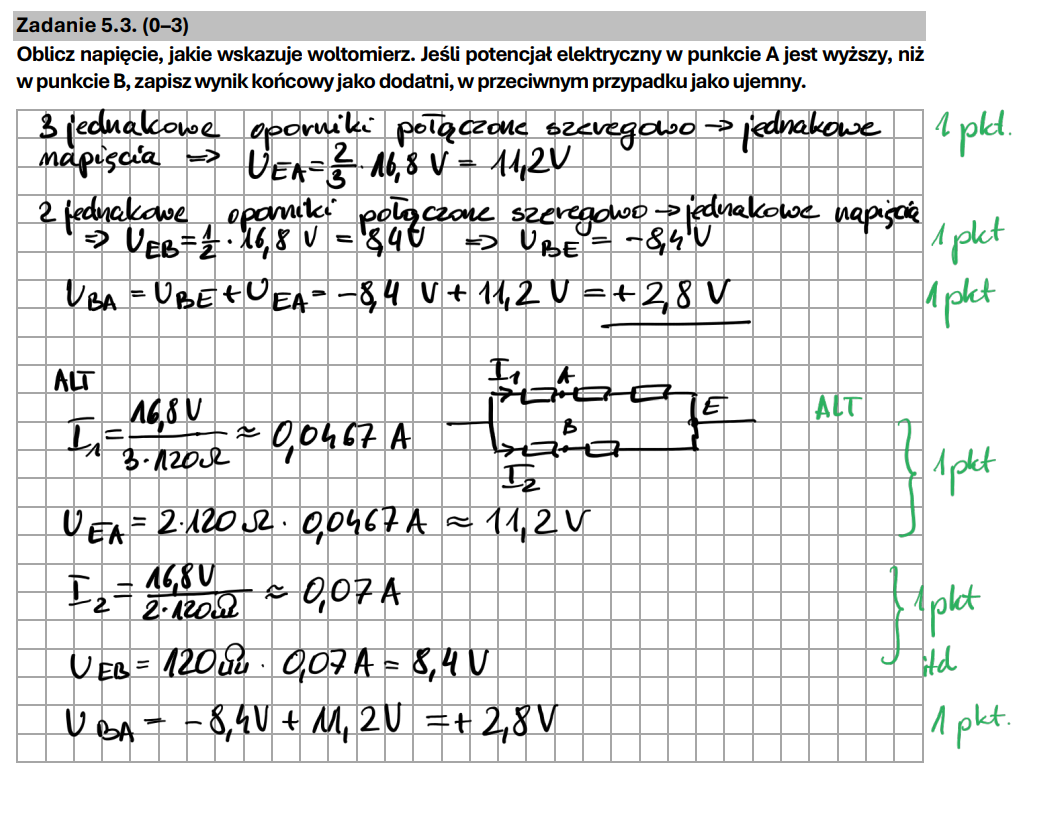 Zadanie 5.3. (0–3)
Oblicz napięcie, jakie wskazuje woltomierz. Jeśli potencjał elektryczny w punkcie A jest wyższy, niż
w punkcie B, zapisz wynik końcowy jako dodatni, w przeciwnym przypadku jako ujemny.
3 jednakowe oporniki połączone szeregowo → jednakowe 1 pkt.
napięcia => U_EA = 2/3 · 16,8 V = 11,2V
2 jednakowe oporniki połączone szeregowo → jednakowe napięcia
=> U_EB = 1/2 · 16,8 V = 8,4V => U_BE = -8,4V 1 pkt
U_BA = U_BE + U_EA = -8,4 V + 11,2 V = +2,8 V 1 pkt
ALT
I_1 = 16,8V / 3·120Ω ≈ 0,0467 A
I_1 A
E
B
I_2
ALT
1 pkt
U_EA = 2·120Ω · 0,0467A ≈ 11,2V
I_2 = 16,8V / 2·120Ω ≈ 0,07A 1 pkt
U_EB = 120Ω · 0,07A = 8,4V itd
U_BA = -8,4V + 11,2V = +2,8V 1 pkt.